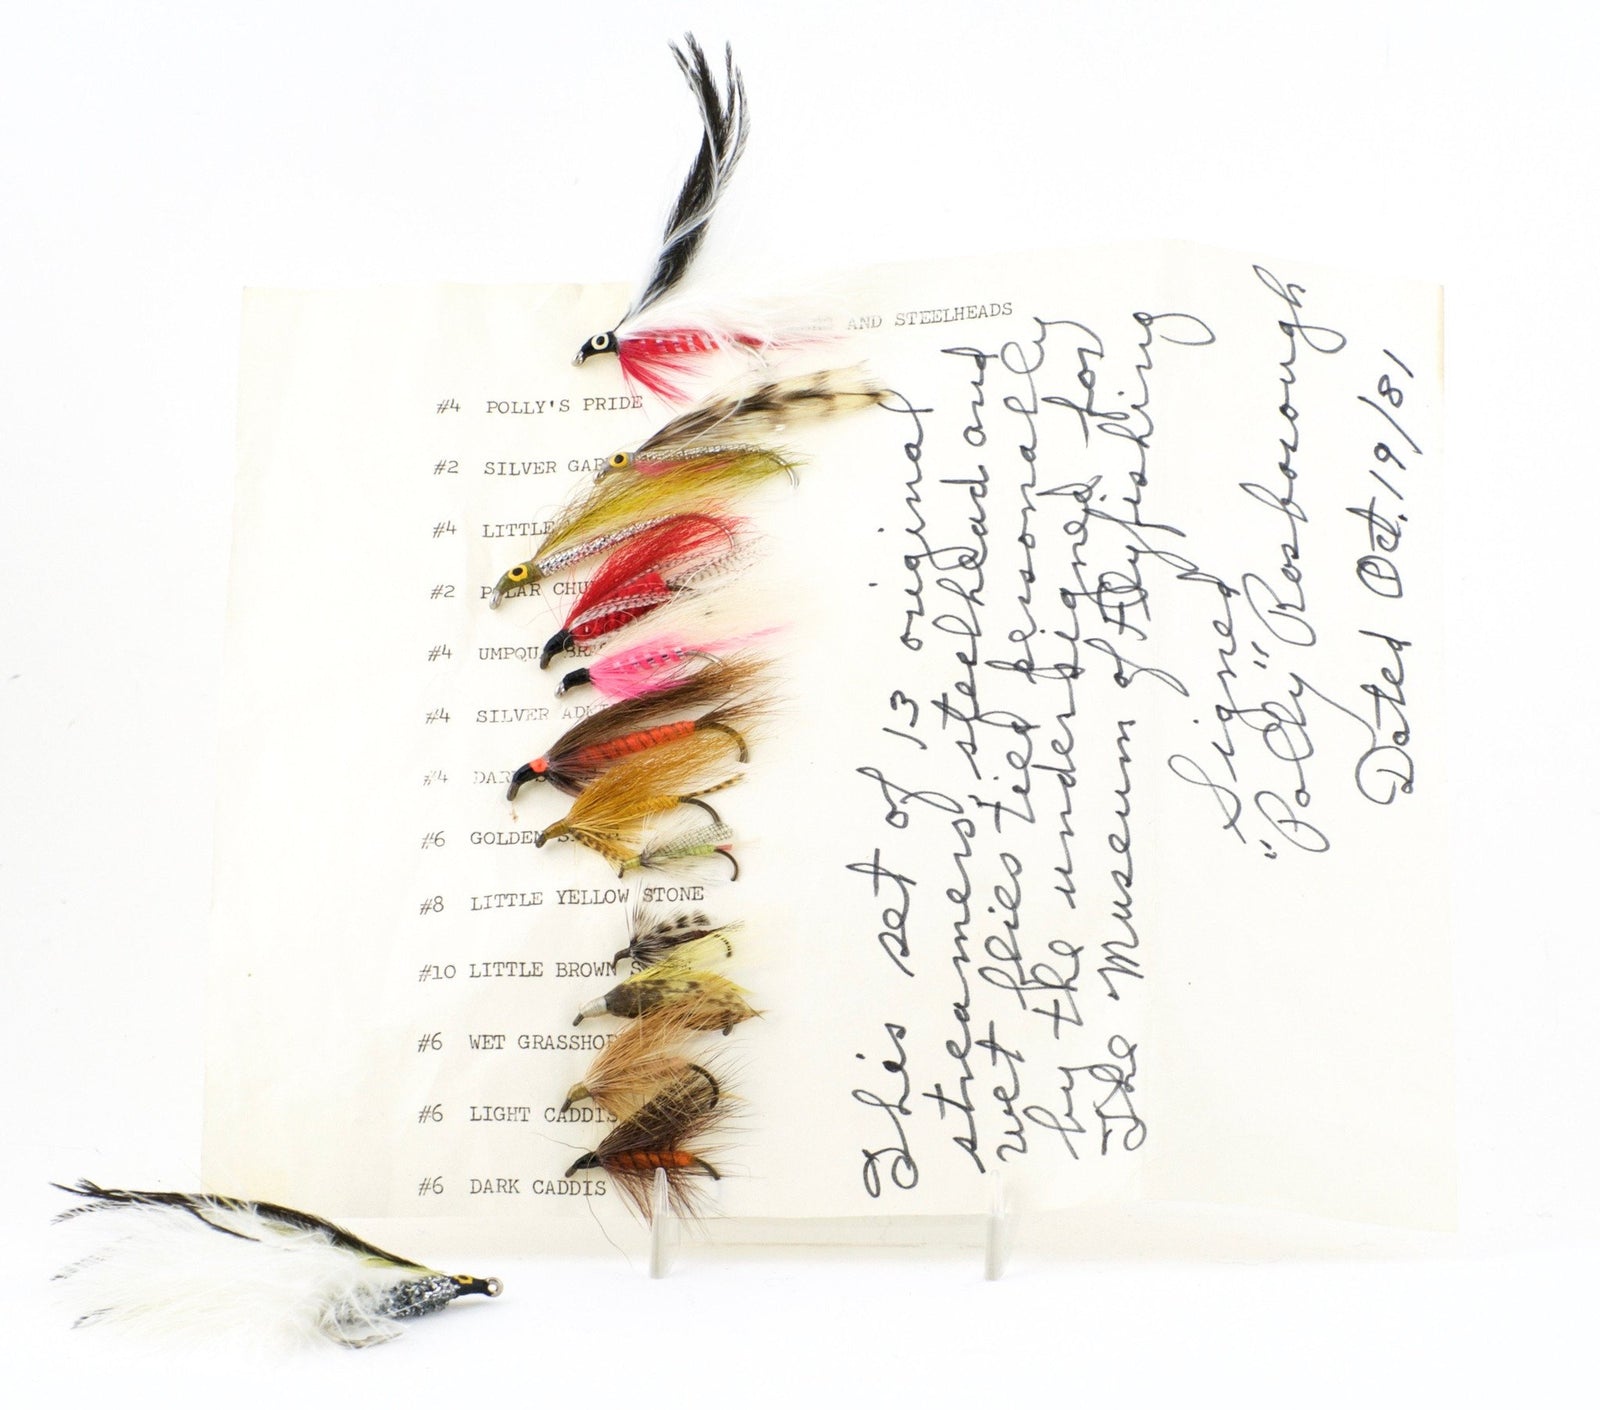 AND STEELHEADS
#4 POLLY'S PRIDE
#2 SILVER GAR
#4 LITTLE
#2 POLAR CHU
#4 UMPQUA
#4 SILVER
#4
#6 GOLDEN
#8 LITTLE YELLOW STONE
#10 LITTLE BROWN
#6 WET GRASSHOP
#6 LIGHT CADDIS
#6 DARK CADDIS
This set of 13 original
streamers' steelhead and
wet flies tied personally
by the undersigned for
The Museum of Flyfishing
Signed
"Polly" Rosborough
Dated Oct. 19/81